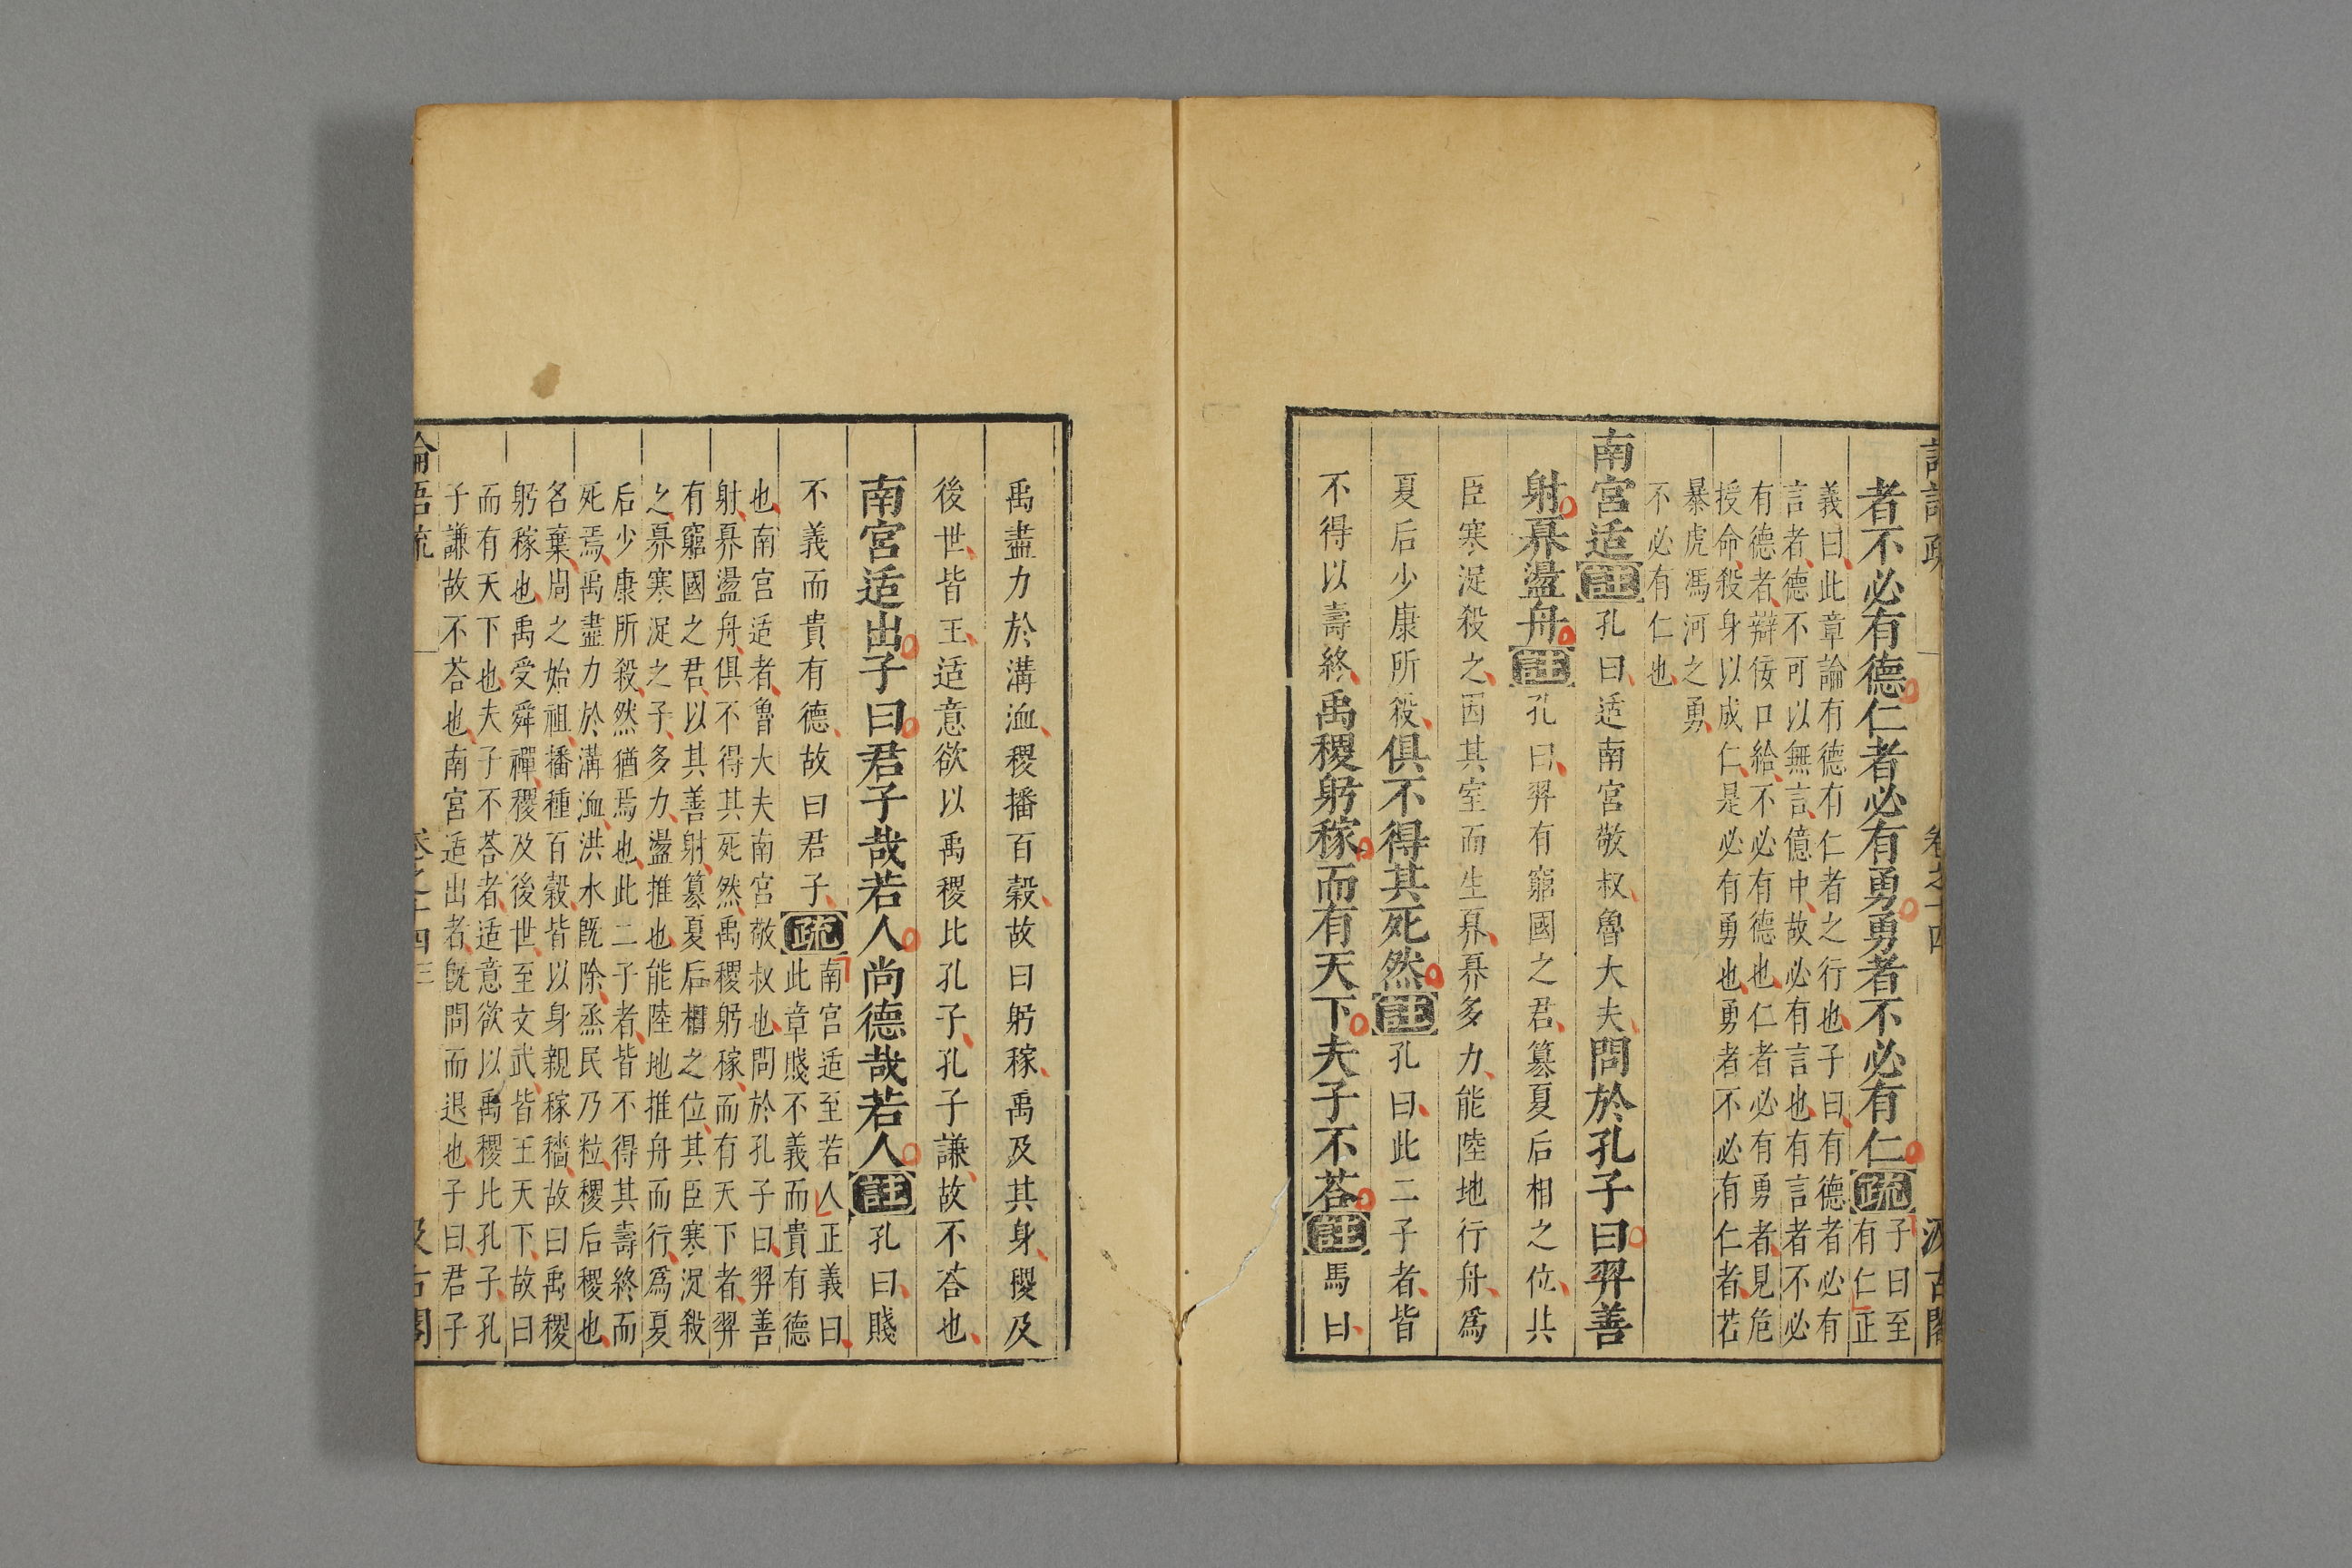 者不必有德仁者必有勇勇者不必有仁疏子曰至
有仁正
義曰此章論有德有仁者之行也子曰有德者必有
言者德不可以無言億中故必有言也有言者不必
有德者辯佞口給不必有德也仁者必有勇者見危
授命殺身以成仁是必有勇也勇者不必有仁者若
暴虎馮河之勇
不必有仁也
南宮适註孔曰适南宮敬叔魯大夫問於孔子曰羿善
射奡盪舟註孔曰羿有窮國之君篡夏后相之位其
臣寒浞殺之因其室而生奡奡多力能陸地行舟爲
夏后少康所殺俱不得其死然註孔曰此二子者皆
不得以壽終禹稷躬稼而有天下夫子不荅註馬曰
禹盡力於溝洫稷播百穀故曰躬稼禹及其身稷及
後世皆王适意欲以禹稷比孔子孔子謙故不荅也
南宮适出子曰君子哉若人尚德哉若人註孔曰賤
不義而貴有德故曰君子疏南宮适至若人正義曰
此章賤不義而貴有德
也南宮适者魯大夫南宮敬叔也問於孔子曰羿善
射奡盪舟俱不得其死然禹稷躬稼而有天下者羿
有窮國之君以其善射篡夏后相之位其臣寒浞殺
之奡寒浞之子多力盪推也能陸地推舟而行爲夏
后少康所殺然猶焉也此二子者皆不得其壽終而
死焉禹盡力於溝洫洪水旣除烝民乃粒稷后稷也
名棄周之始祖播種百穀皆以身親稼穡故曰禹稷
躬稼也禹受舜禪稷及後世至文武皆王天下故曰
而有天下也夫子不荅者适意欲以禹稷比孔子孔
子謙故不荅也南宮适出者旣問而退也子曰君子